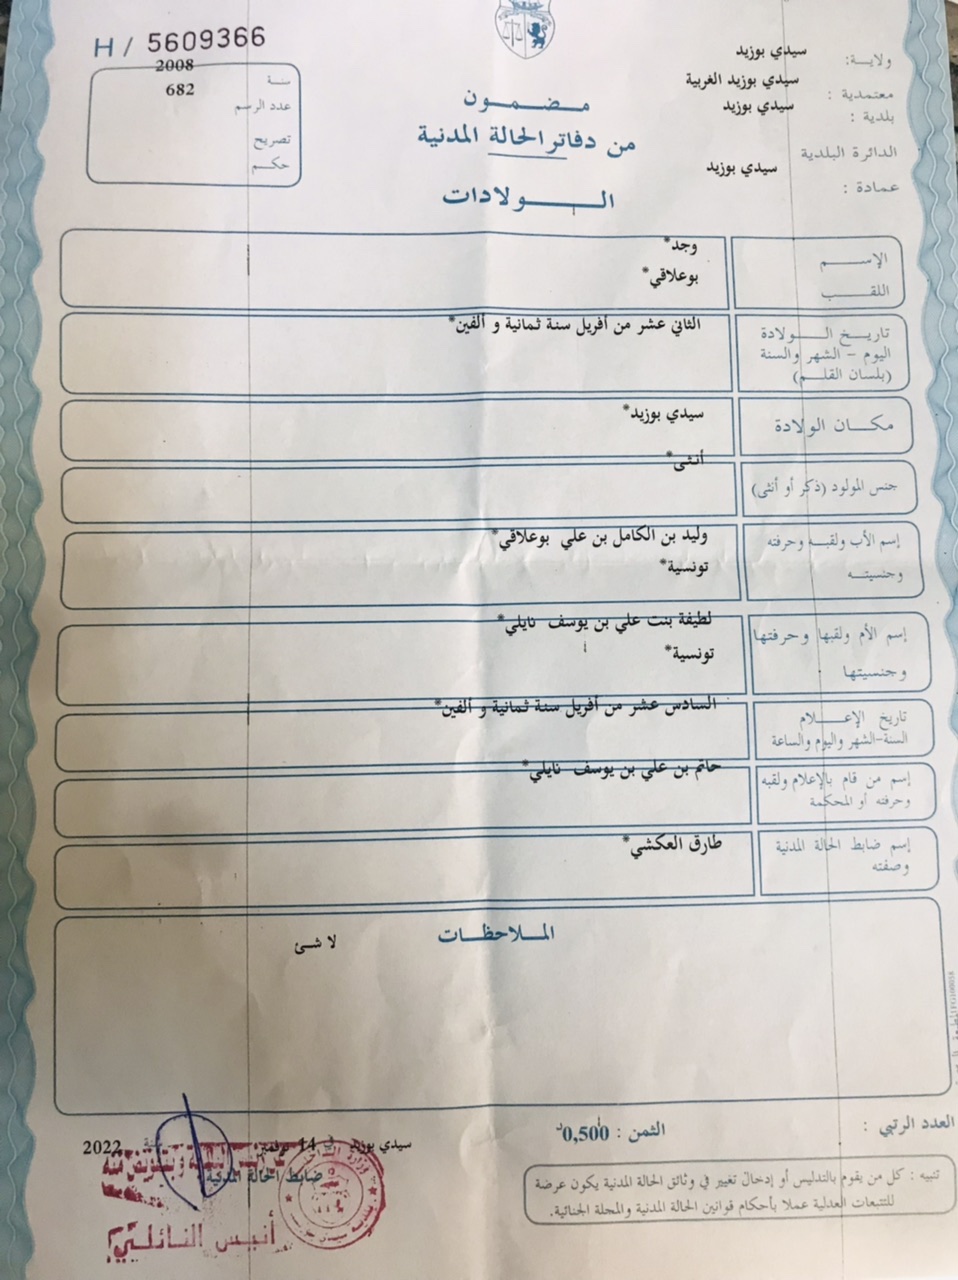 H / 5609366
سنة 2008
عدد الرسم 682
تصريح
حكم
ولاية: سيدي بوزيد
معتمدية : سيدي بوزيد الغربية
بلدية : سيدي بوزيد
الدائرة البلدية
عمادة : سيدي بوزيد
مضمون
من دفاتر الحالة المدنية
الولادات
الإسم وجد*
اللقب بوعلاقي*
تاريخ الولادة الثاني عشر من أفريل سنة ثمانية و ألفين*
اليوم - الشهر والسنة
(بلسان القلم)
مكان الولادة سيدي بوزيد*
جنس المولود (ذكر أو أنثى) أنثى*
إسم الأب ولقبه وحرفته وليد بن الكامل بن علي بوعلاقي*
وجنسيته تونسية*
إسم الأم ولقبها وحرفتها لطيفة بنت علي بن يوسف نايلي*
وجنسيتها تونسية*
تاريخ الإعلام السادس عشر من أفريل سنة ثمانية و ألفين*
السنة-الشهر واليوم والساعة
إسم من قام بالإعلام ولقبه حاتم بن علي بن يوسف نايلي*
وحرفته أو المحكمة
إسم ضابط الحالة المدنية طارق العكشي*
وصفته
الملاحظات
لا شئ
العدد الرتبي :
الثمن : 0,500د
سيدي بوزيد في 14 نوفمبر سنة 2022
ضابط الحالة المدنية
أنيس النائلي
تنبيه : كل من يقوم بالتدليس أو إدخال تغيير في وثائق الحالة المدنية يكون عرضة
للتتبعات العدلية عملا بأحكام قوانين الحالة المدنية والمجلة الجنائية.